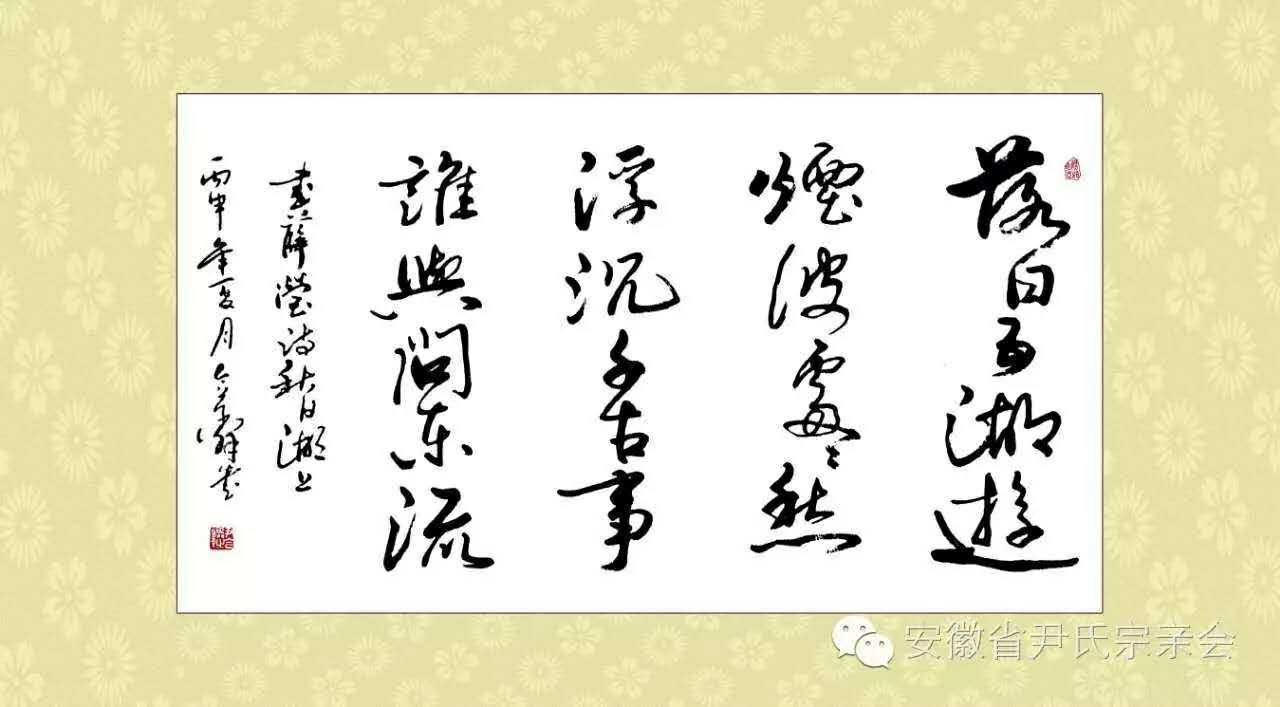 落日五湖遊
煙波處〻愁
浮沉千古事
誰與問東流
書薛瑩詩秋日湖上
丙申年夏月
安徽省尹氏宗亲会